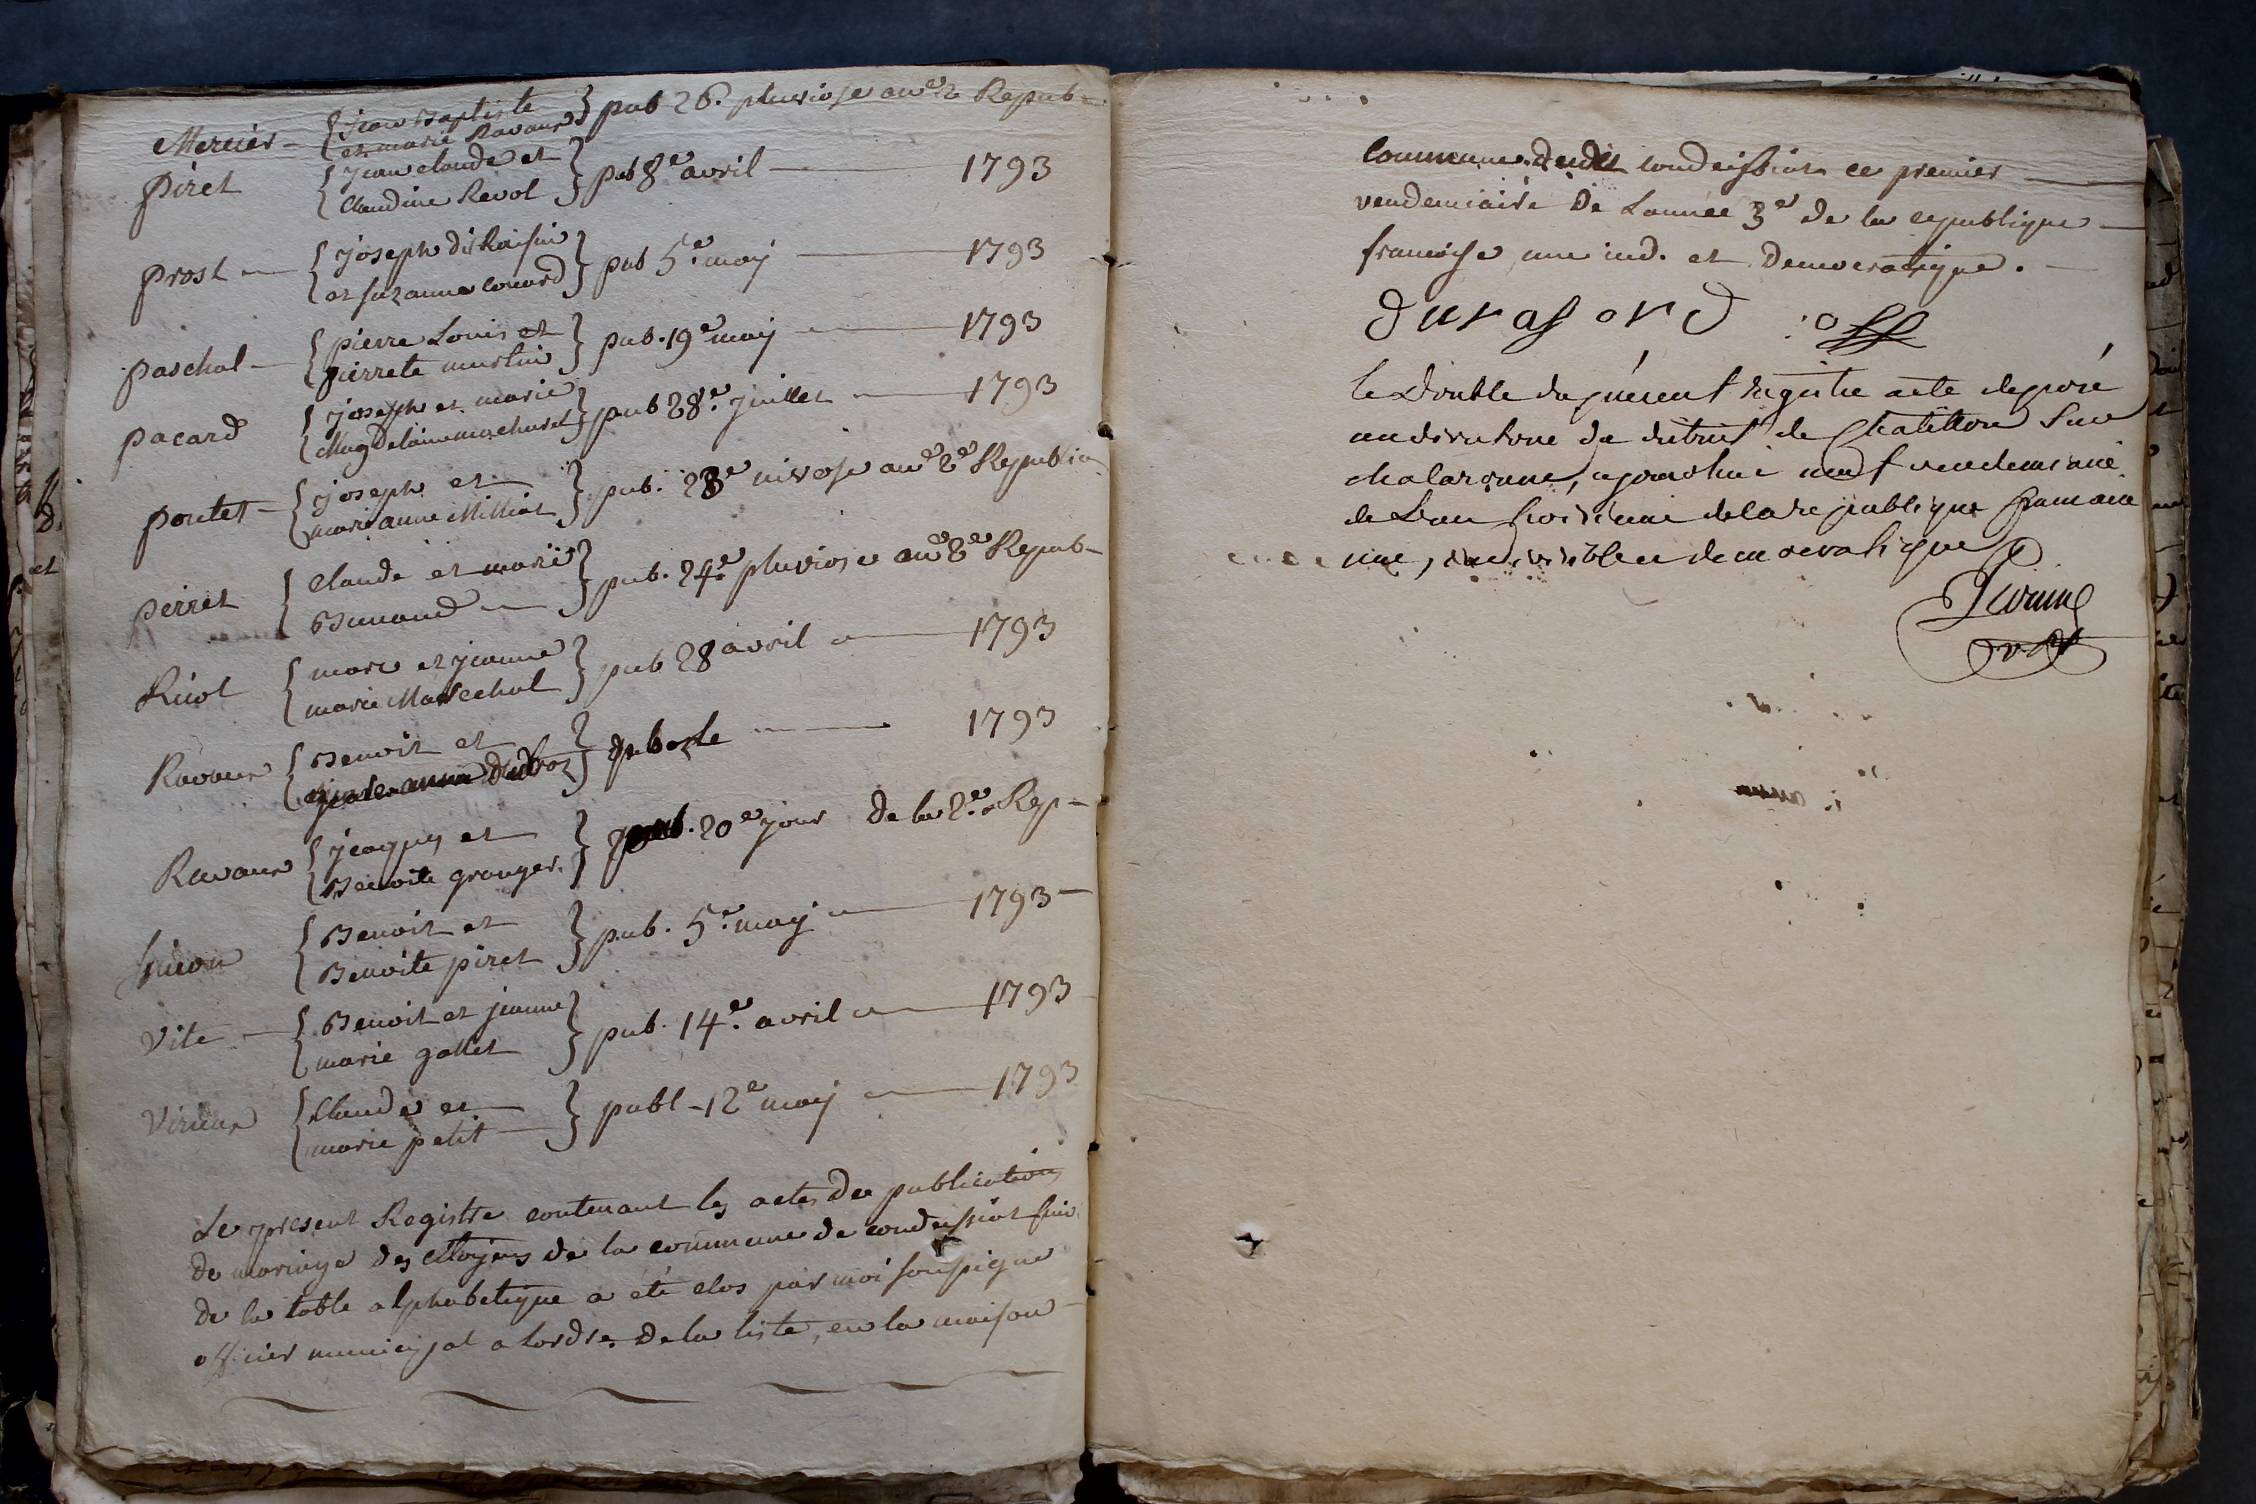 Mercier — { jean Baptiste } pub 26.e pluviose an 2e Repub-
{ et marie Ravaux }
piret { jean claude et } pub 8e avril — 1793
{ claudine Revol }
prost — { joseph dit Raisin } pub 5.e may — 1793
{ et suzanne couard }
paschal — { pierre Louis et } pub. 19e may — 1793
{ pierrete martin }
pacard { joseph et marie } pub 28.e juillet — 1793
{ Magdelaine }
poutet — { joseph et } pub. 28e nivose an 2e Republi
{ marianne Milliat }
perret { claude et marie } pub. 24e pluviose an 2e Repub-
{ Bunand — }
Ruol { marc et jeanne } pub 28 avril — 1793
{ marie Marechal }
Ravaux { Benoit et } — 1793
Ravaux { jacques et } pub. 20e jour de la 2e Rep-
{ Benoite granger. }
{ Benoit et } pub. 5.e may — 1793 —
{ Benoite piret }
Vite — { Benoit et jeanne } pub. 14e. avril — 1793
{ marie gallet }
Virieux { Claude et } publ - 12e may — 1793
{ marie petit — }
Le present Registre contenant les actes de publications
de mariage des citoyens de la commune de condeissiat suivi
de la table alphabetique a été clos par moi soussigne
officier municipal a lordre de la liste, en la maison
commune dudit condeissiat ce premier
vendemiaire de Lannée 3e de la republique
francoise, une ind. et democratique.
durasord off
le Double du présent registre acte deposé
au directoire du district de Chatillon sur
chalaronne, ajourdhui neuf vendemiaire
de Lan troisieme de la republique francaise
une, indivisible et democratique